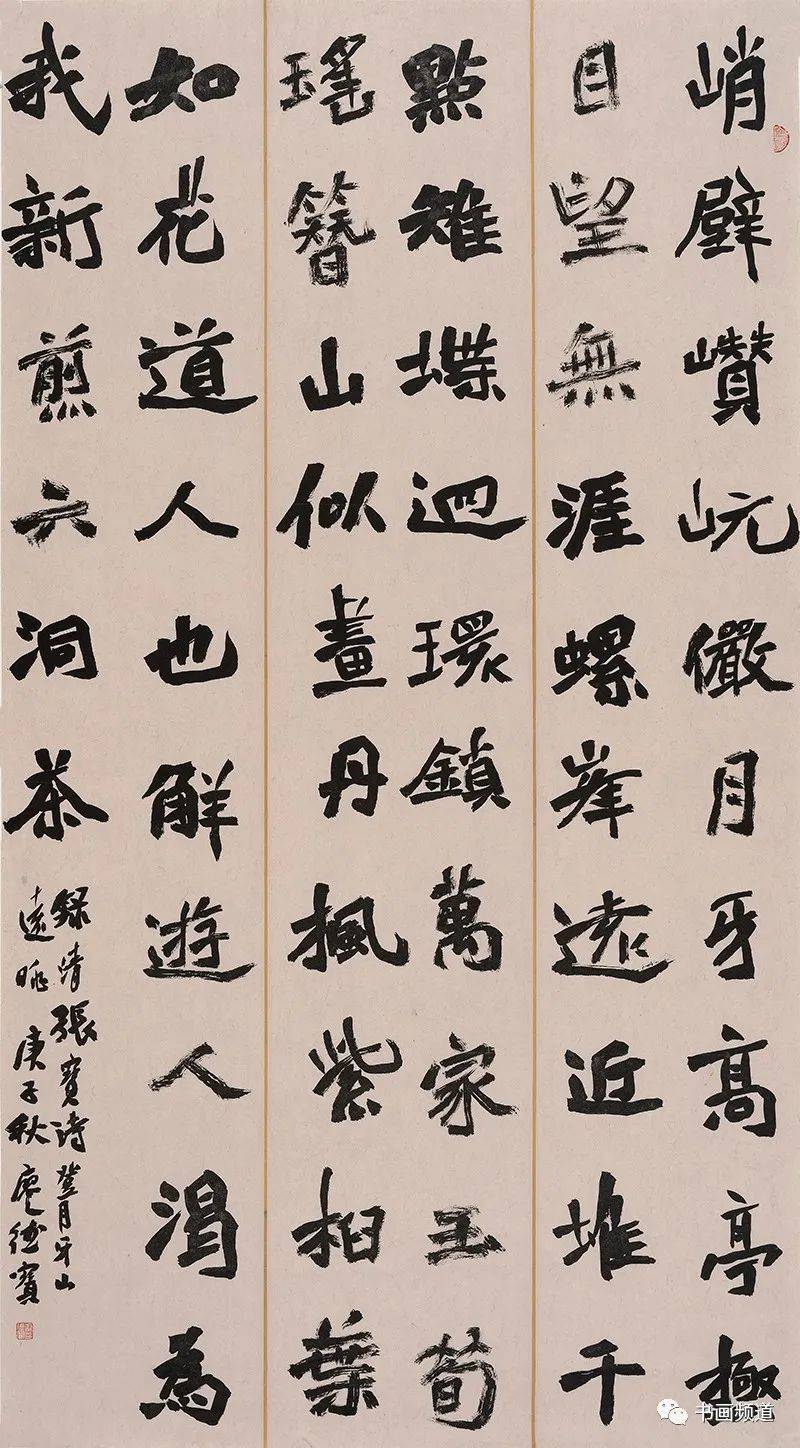 峭壁巑岏儼月牙高亭極
目望無涯螺峯遠近堆千
點雉堞迴環鎖萬家玉筍
瑤簪山似畫丹楓紫柏葉
如花道人也解遊人渴為
我新煎六洞茶
錄清張寶詩登月牙山
遠眺庚子秋廖德寶
书画频道